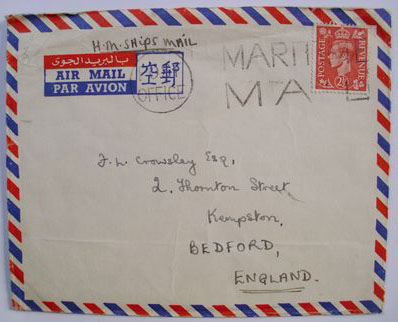 H.M. SHIPS MAIL
بالبريد الجوى
AIR MAIL
PAR AVION
空郵
OFFICE
MARI
MA L
POSTAGE
REVENUE
2½
J. L. Crowsley Esq.,
2. Thornton Street,
Kempston,
BEDFORD,
ENGLAND.